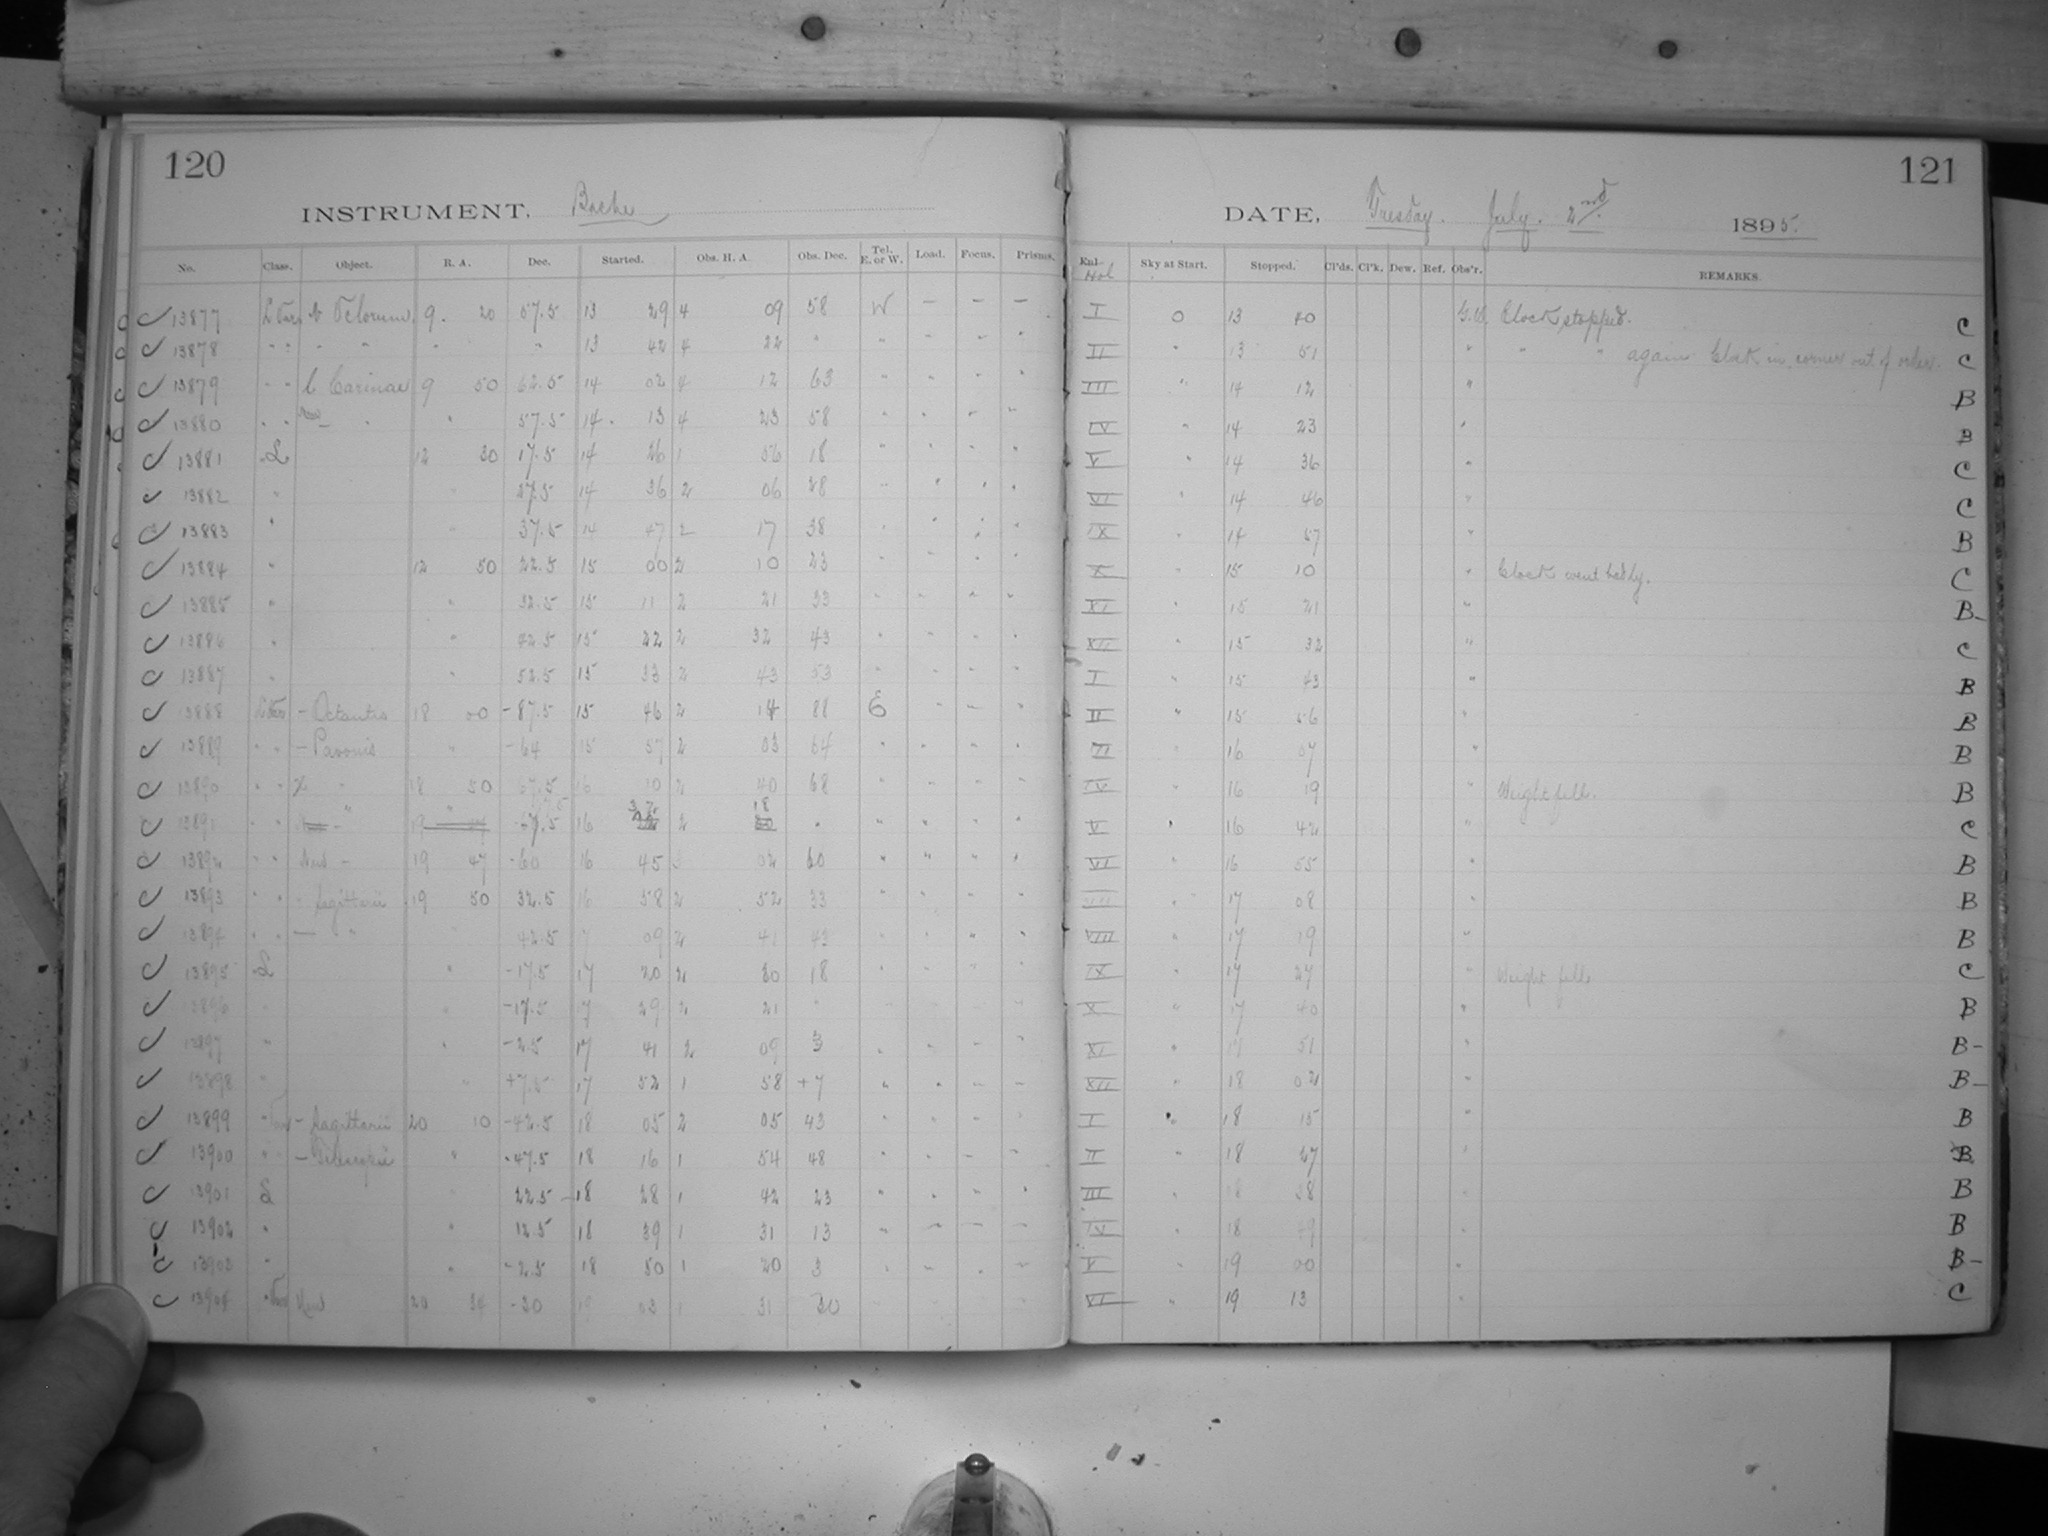 120
INSTRUMENT, Bache
No. Class. Object. R. A. Dec. Started. Obs. H. A. Obs. Dec. Tel. E. or W. Load. Focus. Prisms.
13877 Velorum 9 20 57.5 13 29 4 09 58 W — — —
13878 " " " " " " 13 42 4 22 " " " " "
13879 " " Carinae 9 50 62.5 14 02 4 12 63 " " " "
13880 " " " " 57.5 14 13 4 23 58 " " " "
13881 12 30 17.5 14 26 1 56 18 " " " "
13882 " " 27.5 14 36 2 06 28 " " " "
13883 " " 37.5 14 47 2 17 38 " " " "
13884 " 12 50 22.5 15 00 2 10 23 " " " "
13885 " " 32.5 15 11 2 21 33 " " " "
13886 " " 42.5 15 22 2 32 43 " " " "
13887 " " 52.5 15 33 2 43 53 " " " "
13888 — Octantis 18 00 -87.5 15 46 2 14 88 E " — "
13889 " " — Pavonis " -64 15 57 2 03 64 " " " "
13890 " " 18 50 67.5 16 10 2 40 68 " " " "
13891 " " " 16 32 2 18 " " " " "
13892 " " 19 47 -60 16 45 02 60 " " " "
13893 " " Sagittarii 19 50 32.5 16 58 2 52 33 " " " "
13894 " " — " " 42.5 17 09 2 41 43 " " " "
13895 " -17.5 17 20 2 30 18 " " " "
13896 " " -17.5 17 29 2 21 " " " " "
13897 " " -2.5 17 41 2 09 3 " " " "
13898 " " +7.5 17 52 1 58 +7 " " " "
13899 — Sagittarii 20 10 -42.5 18 05 2 05 43 " " " "
13900 " " — " -47.5 18 16 1 54 48 " " " "
13901 " 22.5 18 28 1 42 23 " " " "
13902 " " 12.5 18 39 1 31 13 " " " "
13903 " " -2.5 18 50 1 20 3 " " " "
13904 20 34 -30 19 03 1 31 30
121
DATE, Tuesday. July. 2nd. 1895.
Sky at Start. Stopped. Cl'ds. Cl'k. Dew. Ref. Obs'r. REMARKS.
I 0 13 40 Clock stopped. C
II " 13 51 " " " again Clock in corner out of order. C
III " 14 12 " B
IV " 14 23 " B
V " 14 36 " C
VI " 14 46 " C
IX " 14 57 " B
X " 15 10 " Clock went badly. C
XI " 15 21 " B-
XII " 15 32 " C
I " 15 43 " B
II " 15 56 " B
" 16 07 " B
IV " 16 19 " Weight fell. B
V " 16 42 " C
VI " 16 55 " B
" 17 08 " B
VIII " 17 19 " B
IX " 17 27 " Weight fell C
X " 17 40 " B
XI " 17 51 " B-
XII " 18 02 " B-
I " 18 15 " B
II " 18 27 " B
III " 18 38 " B
IV " 18 49 " B
V " 19 00 " B-
VI " 19 13 C